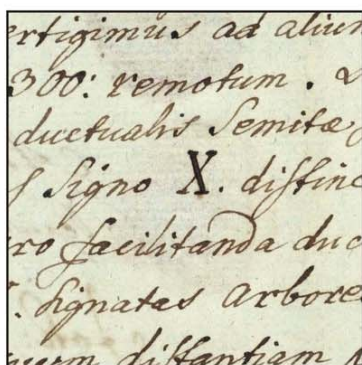 ertigimus ad aliun
300: remotum .
ductualis Semitæ,
Signo X. distinc
ro facilitanda duc
. Signatas arbore
distantiam